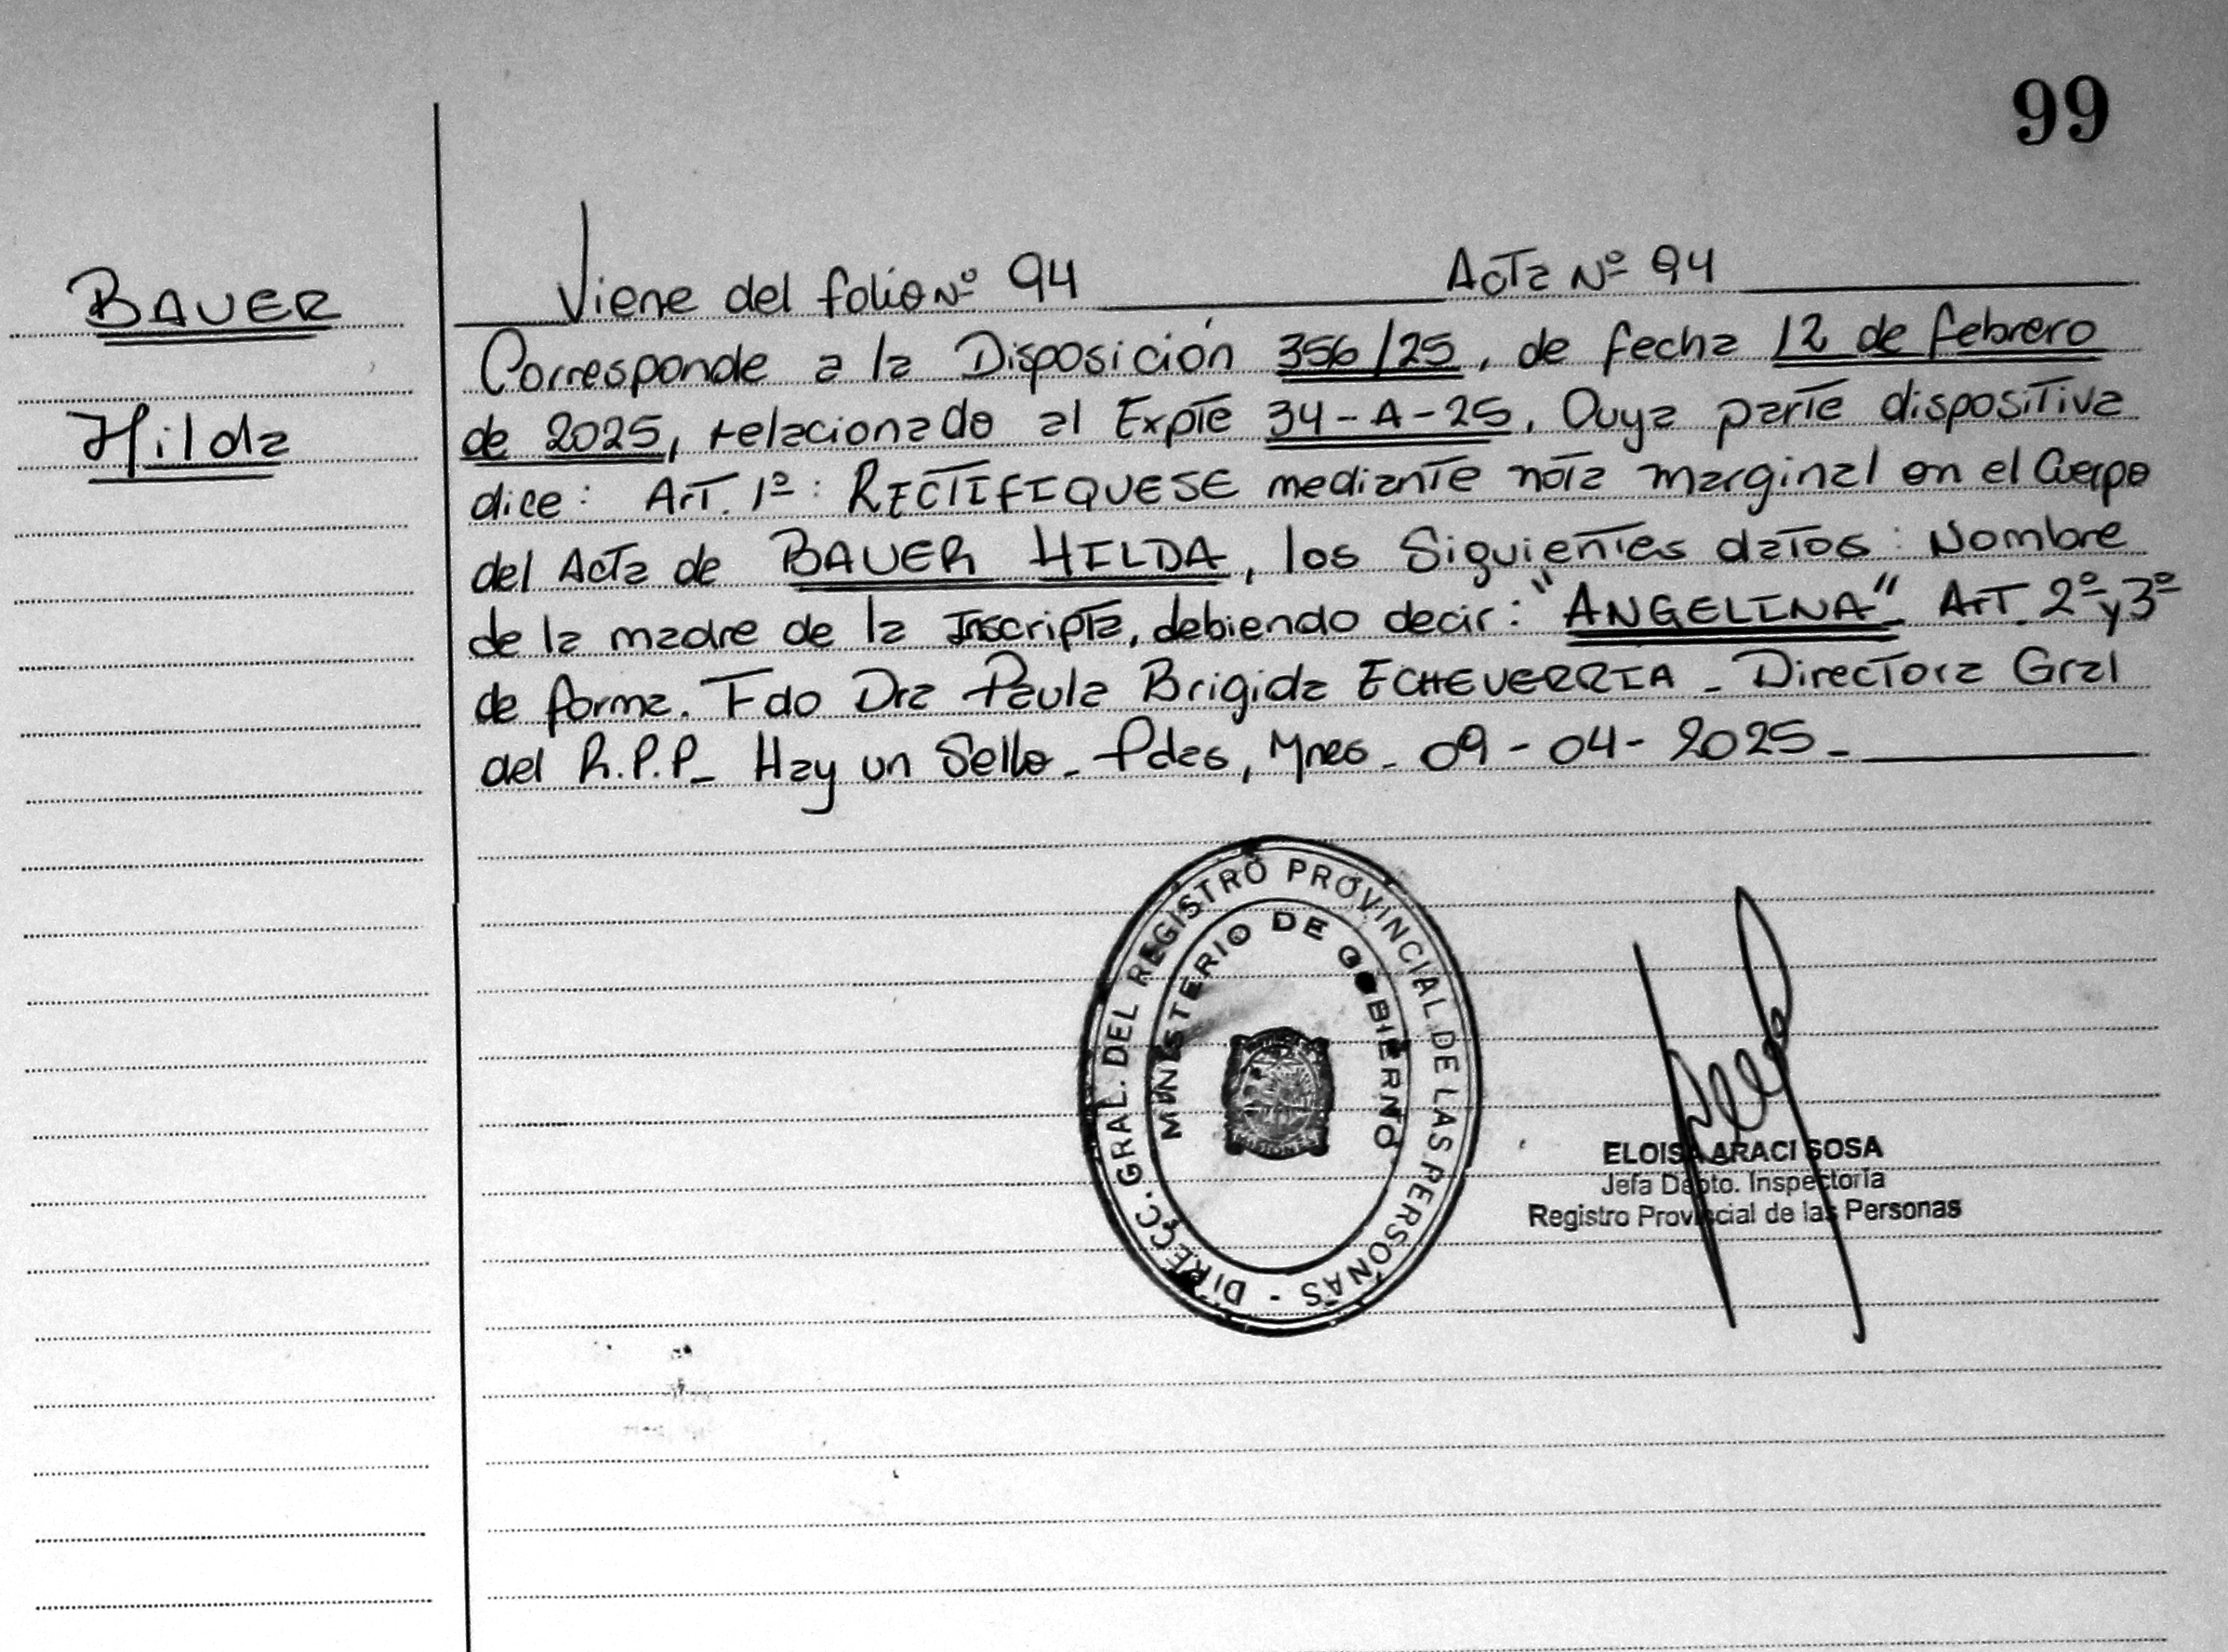 99
BAUER
Hilda
Viene del folio Nº 94 Acta Nº 94
Corresponde a la Disposición 356/25, de fecha 12 de febrero
de 2025, relacionado al Expte 34-A-25, Cuya parte dispositiva
dice: Art. 1º: RECTIFIQUESE mediante nota marginal en el Cuerpo
del Acta de BAUER HILDA, los Siguientes datos: Nombre
de la madre de la Inscripta, debiendo decir: "ANGELINA" Art. 2º y 3º
de forma. Fdo Dra Paula Brigida ECHEVERRIA - Directora Gral
del R.P.P- Hay un Sello- Pdas, Mnes- 09-04-2025-
DIRECC. GRAL. DEL REGISTRO PROVINCIAL DE LAS PERSONAS -
MINISTERIO DE GOBIERNO
ELOISA ARACI SOSA
Jefa Depto. Inspectoria
Registro Provincial de las Personas